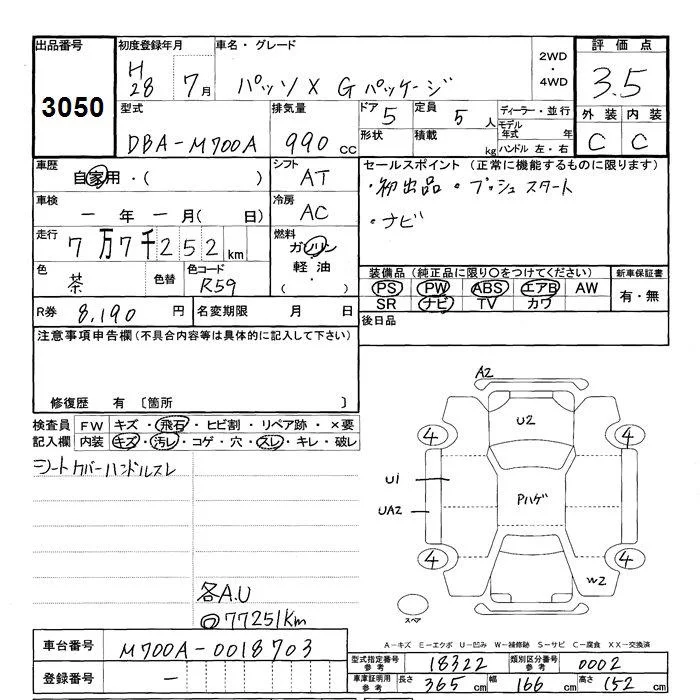 出品番号 初度登録年月 車名・グレード 2WD ・ 4WD 評価点
3050 H28 7月 パッソ X Gパッケージ 3.5
型式 排気量 ドア 5 定員 5人 ディーラー・並行 外装 内装
DBA-M700A 990cc 形状 積載 kg モデル年式 年 ハンドル 左・右 C C
車歴 自家用・( ) シフト AT セールスポイント (正常に機能するものに限ります)
・初出品 ・プッシュスタート
車検 ー年ー月( 日) 冷房 AC ・ナビ
走行 7万7千252km 燃料 ガソリン・軽油・( )
色 茶 色替 色コード R59 装備品 (純正品に限り○をつけてください) 新車保証書
PS PW ABS エアB AW 有・無
SR ナビ TV カワ
R券 8,190円 名変期限 月 日 後日品
注意事項申告欄 (不具合内容等は具体的に記入して下さい)
修復歴 有 〔箇所 〕
検査員 FW キズ・飛石・ヒビ割・リペア跡・×要
記入欄 内装 キズ・汚レ・コゲ・穴・スレ・キレ・破レ
シートカバーハンドルスレ
各A.U
77251Km
A2
U2
4 4
U1
UA2
Pハゲ
4 4
W2
スペア
A-キズ E-エクボ U-凹み W-補修跡 S-サビ C-腐食 XX-交換済
車台番号 M700A-0018703
型式指定番号 参考 18322 類別区分番号 参考 0002
登録番号 ー
車庫証明用 参考 長さ 365cm 幅 166cm 高さ 152cm